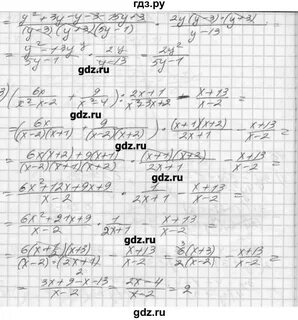 гдз.ру
= (y² + 3y - y - 3 - 15y + 3) / ((y-3)(y+3)(5y-1)) · (2y(y-3)·(y+3)) / (y-13) =
= (y² - 13y) / (5y-1) · 2y / (y-13) = 2y² / (5y-1)
gdz.ru
3) (6x / (x²-x-2) + 9 / (x²-4)) : (2x+1) / (x²+3x+2) - (x+13) / (x-2) =
= (6x / ((x-2)(x+1)) + 9 / ((x-2)(x+2))) · ((x+1)(x+2)) / (2x+1) - (x+13) / (x-2) =
gdz.ru
= (6x(x+2)+9(x+1)) / ((x-2)(x+1)(x+2)) · ((x+1)(x+2)) / (2x+1) - (x+13) / (x-2) =
= (6x²+12x+9x+9) / (x-2) · 1 / (2x+1) - (x+13) / (x-2) =
gdz.ru
= (6x²+21x+9) / (x-2) · 1 / (2x+1) - (x+13) / (x-2) =
gdz.ru
= (3x+9-x-13) / (x-2) = (2x-4) / (x-2) = 2
gdz.ru